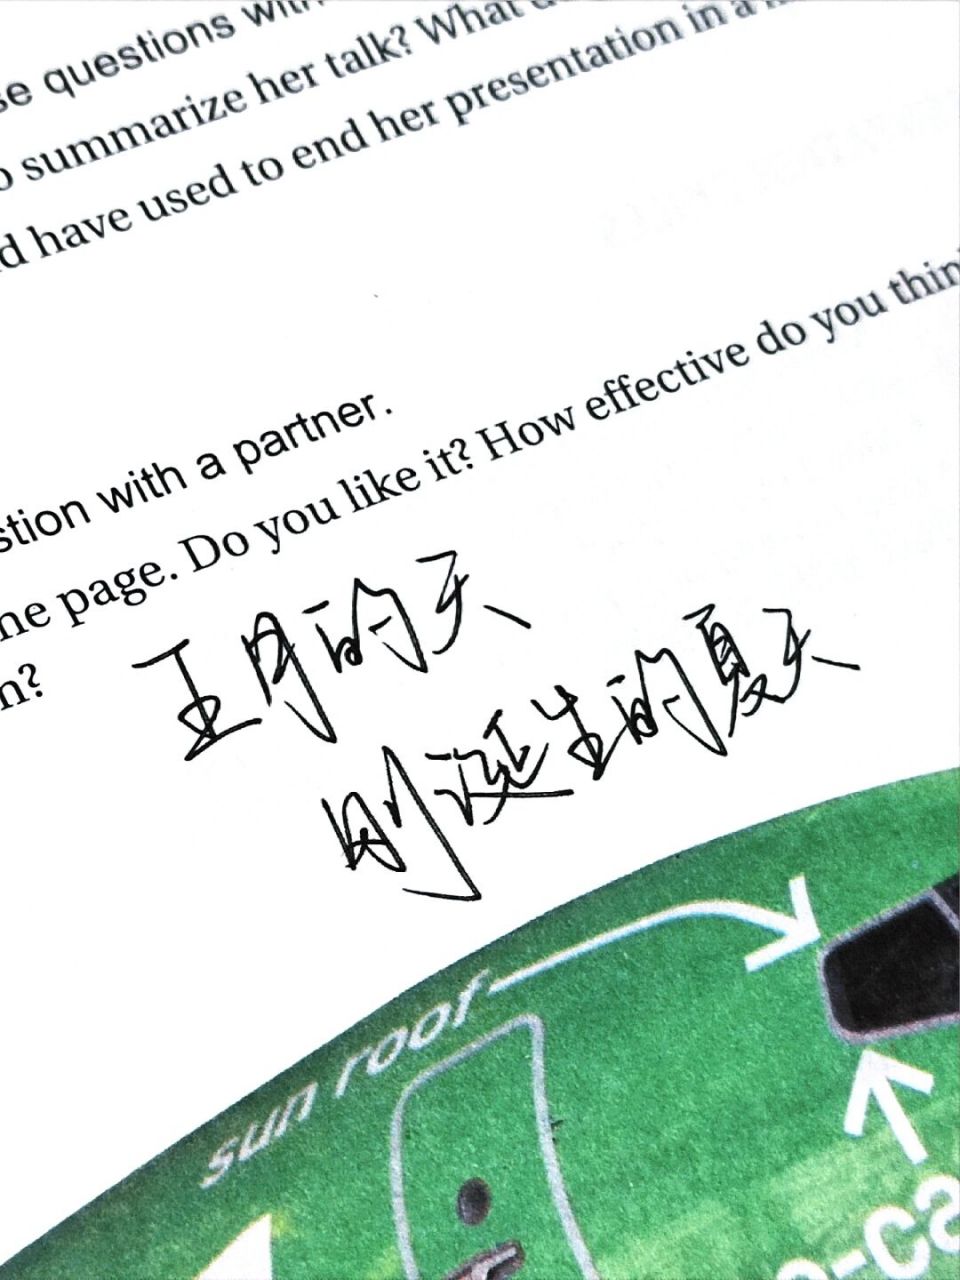 se questions with
o summarize her talk? What
d have used to end her presentation in a
stion with a partner.
he page. Do you like it? How effective do you thin
n?
五月的天
刚诞生的夏天
sun roof